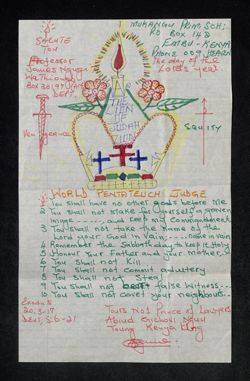 SALUTE
TOH
Professor
James Nguga
Wa Thiong'o
BOX 30197
DEPT.
MURANGU PRIM SCH:
PO BOX 148
EMBU - KENYA
PHONE 009
The day of the
Lord's year
I AM
THE
LION OF
JUDAH
Vengeance
EQUITY
WORLD PENTATEUCH JUDGE
1 You Shall have no other gods before Me
2 You Shall not Make for Yourself a graven
image . . . and Keep my Commandment
3 You Shall not take the Name of the
Lord your God in Vain . . . name in vain
4 Remember the Sabbath day to keep it Holy
5 Honour Your Father and your Mother
6 You Shall not Kill
7 You Shall not commit adultery
8 You Shall not Steal
9 You Shall not bear false witness..
10 You Shall not covet your neighbour...
Exodus
20:3-17
DEUT. 5:6-21
Yours No 1 Prince of Lawyers
Young Kenya King